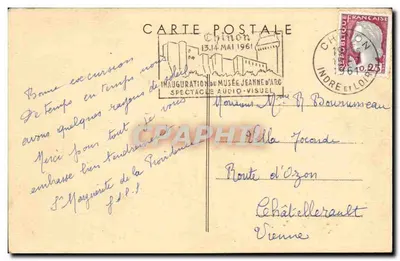 CARTE POSTALE
Chinon
13.14 MAI 1961
INAUGURATION DU MUSÉE JEANNE D'ARC
SPECTACLE AUDIO-VISUEL
CHINON
INDRE ET LOIRE
REPUBLIQUE FRANCAISE
0.25
Bonne excursion
De temps en temps nous
avons quelques rayons de soleil
Merci pour tout je vous
embrasse bien tendrement
Sr Marguerite de la Providence
Monsieur Mme R Bourumeau
Villa Jocarde
Route d'Ozon
Châtellerault
Vienne